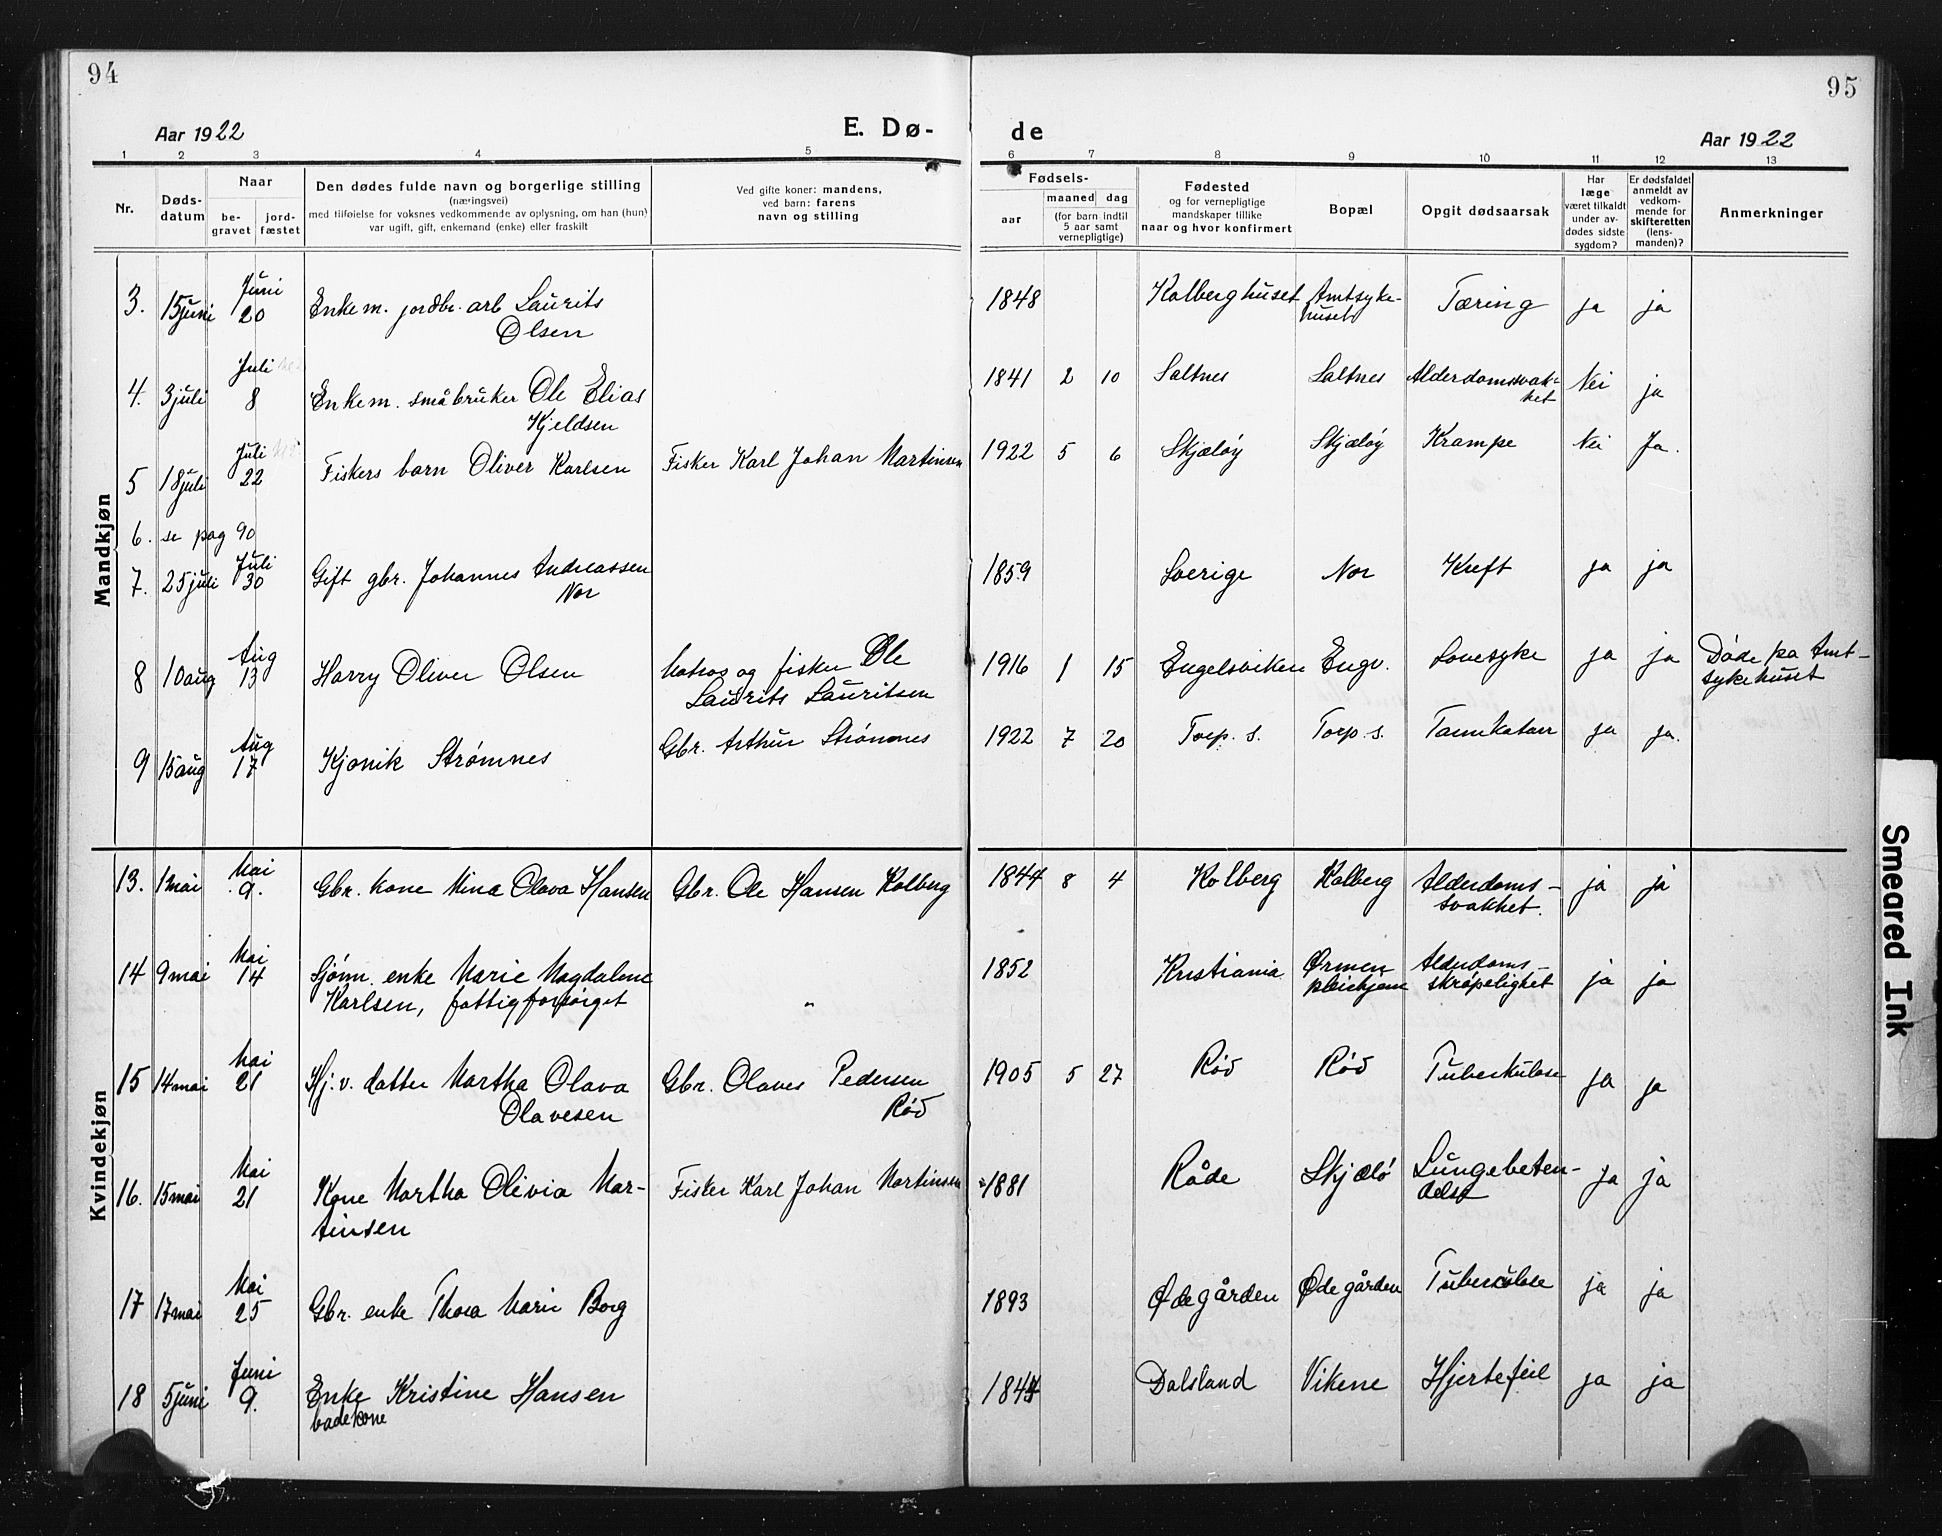 94
95
Aar 1922
E. Dø-
de
Aar 1922
1 2 3 4 5 6 7 8 9 10 11 12 13
Nr.
Døds-
datum
Naar
be-
gravet
jord-
fæstet
Den dødes fulde navn og borgerlige stilling
(næringsvei)
med tilføielse for voksnes vedkommende av oplysning, om han (hun)
var ugift, gift, enkemand (enke) eller fraskilt
Ved gifte koner: mandens,
ved barn: farens
navn og stilling
Fødsels-
aar
maaned dag
(for barn indtil
5 aar samt
vernepligtige)
Fødested
og for vernepligtige
mandskaper tillike
naar og hvor konfirmert
Bopæl
Opgit dødsaarsak
Har
læge
været tilkaldt
under av-
dødes sidste
sygdom?
Er dødsfaldet
anmeldt av
vedkom-
mende for
skifteretten
(lens-
manden)?
Anmerkninger
Mandkjøn
3. 15 juni Juni 20 Enkem. jordbr. arb Laurits
Olsen
1848 Kolberghuset Amtsyke-
huset
Tæring ja ja
4. 3 juli Juli 8 Enkem. småbruker Ole Elias
Kjeldsen
1841 2 10 Saltnes Saltnes Alderdomssvak-
het
Nei ja
5 18 juli Juli 22 Fiskers barn Oliver Karlsen Fisker Karl Johan Martinsen 1922 5 6 Skjæløy Skjæløy Krampe Nei Ja.
6. se pag 90
7. 25 juli Juli 30 Gift gbr. Johannes Andreassen
Nor
1859 Sverige Nor Kreft ja ja
8 10 aug Aug 13 Harry Oliver Olsen Matros og fisker Ole
Laurits Lauritsen
1916 1 15 Engelsviken Engv. Lovesyke ja ja Døde pa Amt-
sykehuset
9 15 aug Aug 17 Kjonik Strømnes Gbr. Arthur Strømnes 1922 7 20 Torp. s. Torp. s. Tarmkatarr ja ja.
Kvindekjøn
13. 1 mai Mai 9. Gbr. kone Mina Olava Hansen Gbr. Ole Hansen Kolberg 1844 8 4 Kolberg Kolberg Alderdoms-
svakhet.
ja ja
14 9 mai Mai 14 Sjøm. enke Marie Magdalene
Karlsen, fattigforsørget
"
1852 Kristiania Ørmen
pleiehjem
Alderdoms-
skrøpelighet
ja ja
15 14 mai Mai 21 Hj. v. datter Martha Olava
Olavesen
Gbr. Olaves Pedersen
Rød
1905 5 27 Rød Rød Tuberkulose ja ja
16. 15 mai Mai 21 Kone Martha Olivia Mar-
tinsen
Fisker Karl Johan Martinsen 1881 Råde Skjælø Lungebeten-
delse
ja ja
17 17 mai Mai 25 Gbr. enke Thora Marie Borg 1893 Ødegården Ødegården Tuberculose ja ja
18 5 juni Juni 9. Enke Kristine Hansen
badekone
Dalsland Vikene Hjertefeil ja ja
Smeared Ink